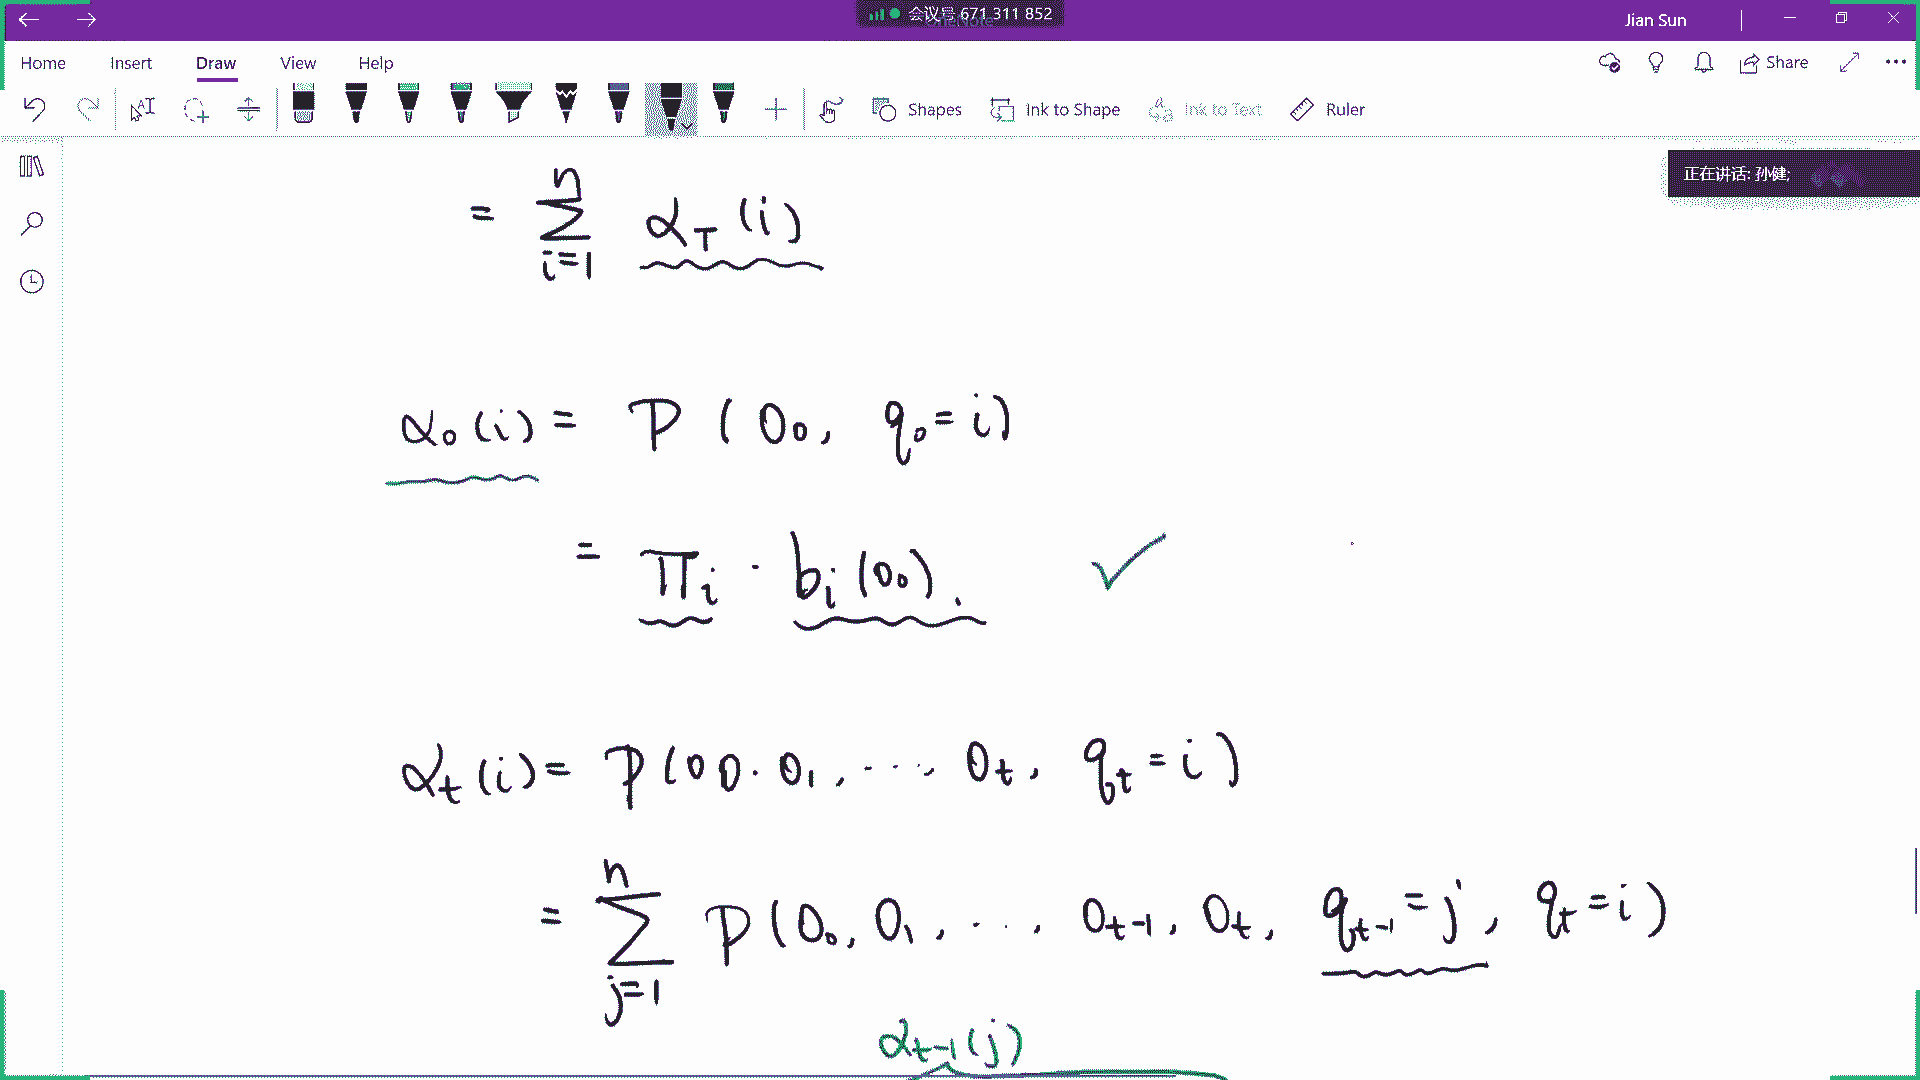 会议号 671 311 852
Jian Sun
Home Insert Draw View Help
Share
Shapes Ink to Shape Ink to Text Ruler
正在讲话: 孙健;
= ∑_{i=1}^{n} α_T(i)
α_0(i) = P(O_0, q_0 = i)
= π_i · b_i(O_0).
α_t(i) = P(O_0. O_1, ..., O_t, q_t = i)
= ∑_{j=1}^{n} P(O_0, O_1, ..., O_{t-1}, O_t, q_{t-1} = j, q_t = i)
α_{t-1}(j)